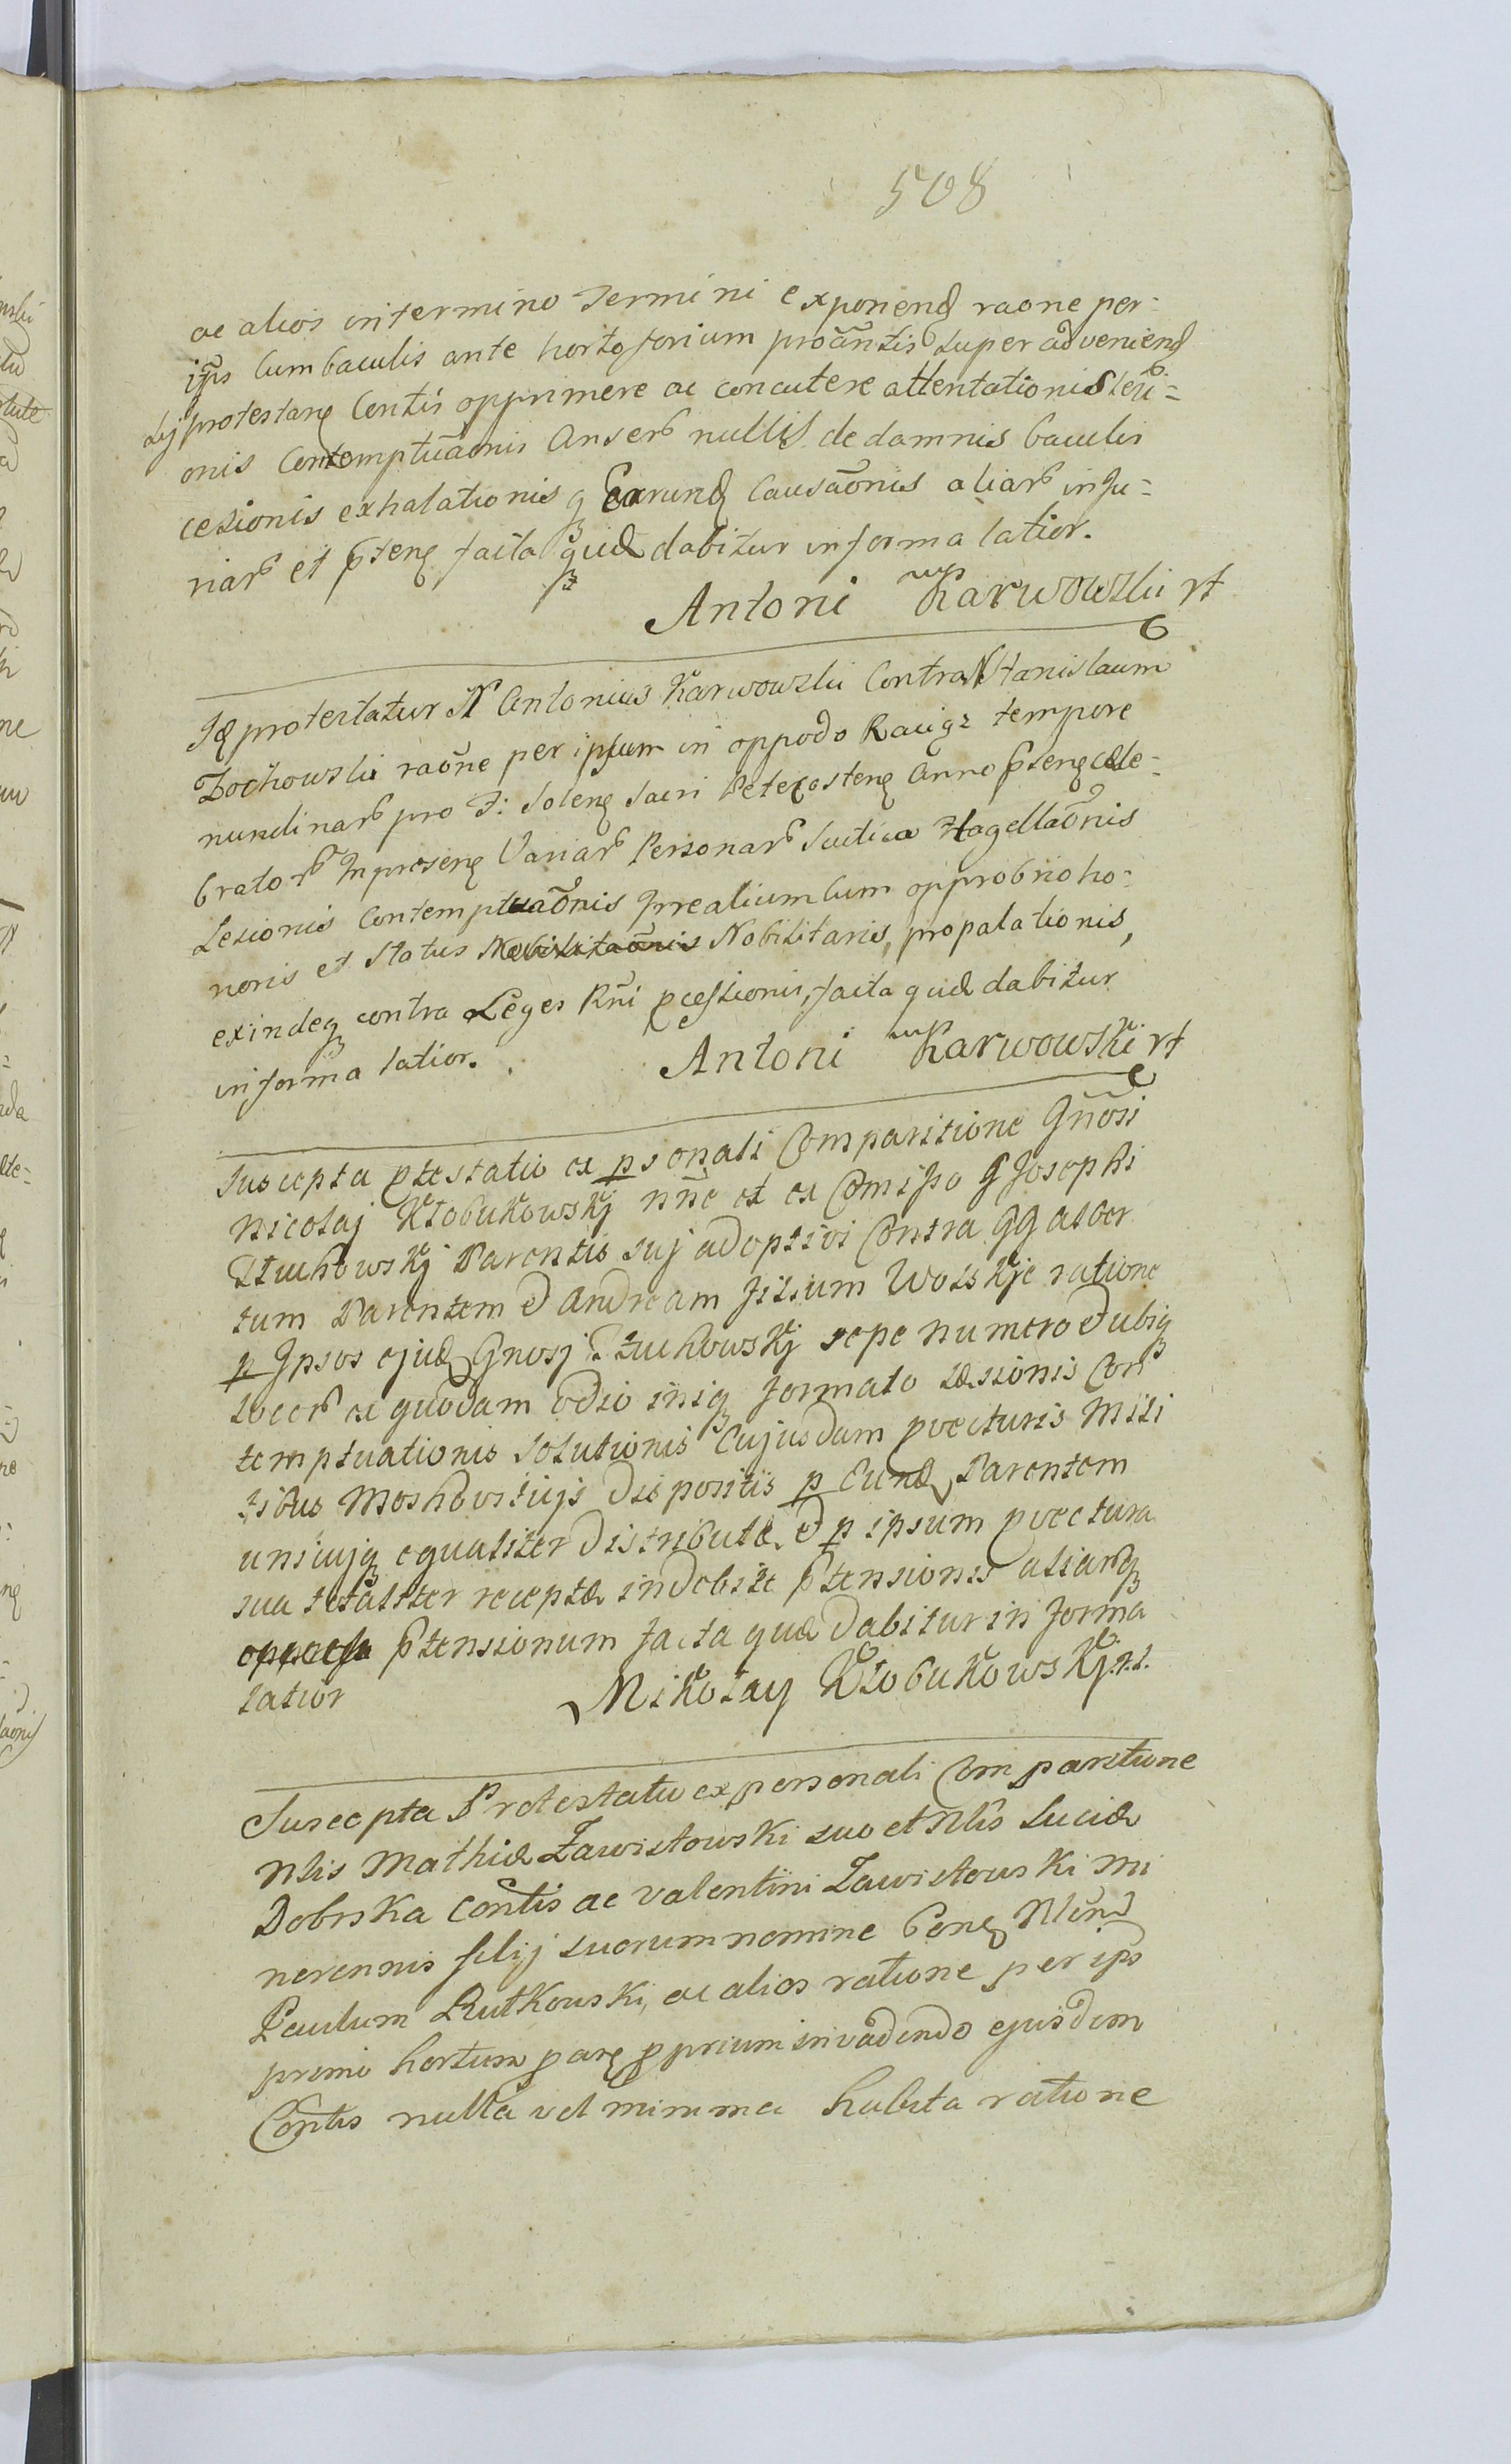 508
ac alios in termino Termini exponend raone per:
ips cum baculis ante horto forium proantis super adveniend
sij protestane Contis opprimere ac concutere attentationis lesi=
onis Contemptuaonis Anser nullis de damnis baculis
cesionis exhalationis q Earund Causaonis aliar inju=
riar et ptene facta qud dabitur in forma latior.
Antoni Karwowski
Id protestatur N Antonius Karwowski Contra N Stanislaum
Zochowski raone per ipsum in oppodo tempore
nundinar pro F: Solene Sacri Anno psene cele=
brator In presene Variar Personar Scutica Flagellaonis
Lesionis contemptuaonis cum opprobrio ho=
noris et Status Nobilitaris, propalationis,
exindeq contra Leges Rni pcessionis, facta qud dabitur
in forma latior.
Antoni Karwowski
Suscepta ptestatio ex psonali Comparitione Gnosi
Nicolaj Kłobukowskj nne et ex Comisso G Josephi
Parentis suj adoptivi Contra GG alber
tum Parentem et Andream filium Wolskje ratione
p Ipsos ejud Gnosj sepe numero et ubiq
locor ex quodam odio iniq formato læsionis Con
temptuationis Solutionis Cujusdam pvecturis Mili
tibus dispositis p Eund Parentem
unicujq equaliter distributæ et p ipsum pvectura
sua totaliter receptæ indebite ptensionis aliarq
ptensionum facta quæ dabitur in forma
latior
Mikołay Kłobukowskj
Suscepta Protestatio ex personali Comparitione
Nlis Mathiæ Zawistowski suo et Nlis Luciæ
Dobrska Contis ac Valentini Zawistowski mi
nerennis filij suorum nomine
Paulum Rutkowski, ac alios ratione per ips
primo hortum pprium invadendo ejusdem
Contis nulla vel minima habita ratione